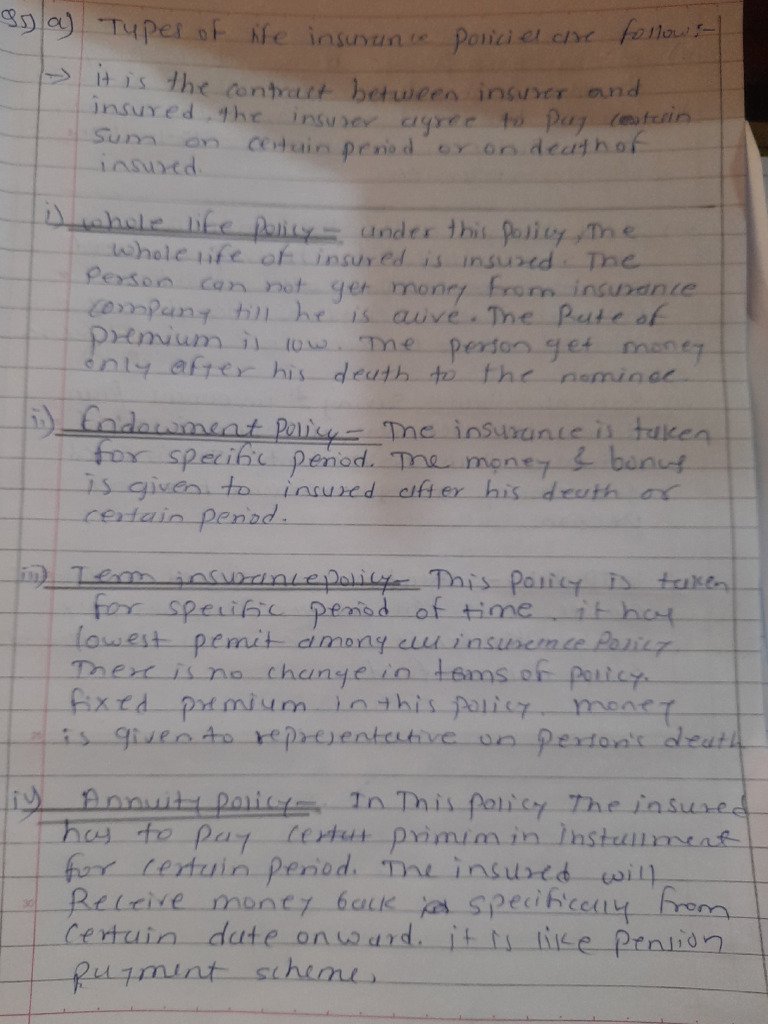 Q5) a) Types of life insurance policies are follow:-
→ it is the contract between insurer and
insured. the insurer agree to pay certain
sum on certain period or on death of
insured.
i) whole life policy = under this policy, The
whole life of insured is insured. The
Person can not get money from insurance
company till he is alive. The Rate of
premium is low. The person get money
only after his death to the nominee
ii) Endowment policy = The insurance is taken
for specific period. The money & bonus
is given to insured after his death or
certain period.
iii) Term insurance policy = This policy is taken
for specific period of time. it has
lowest pemit among all insurance Policy
There is no change in tems of policy.
fixed premium in this policy. money
is given to representative on person's death
iv) Annuity policy = In This policy The insured
has to pay primim in installment
for certain period. The insured will
Receive money back specifically from
certain date onward. it is like pension
payment scheme.